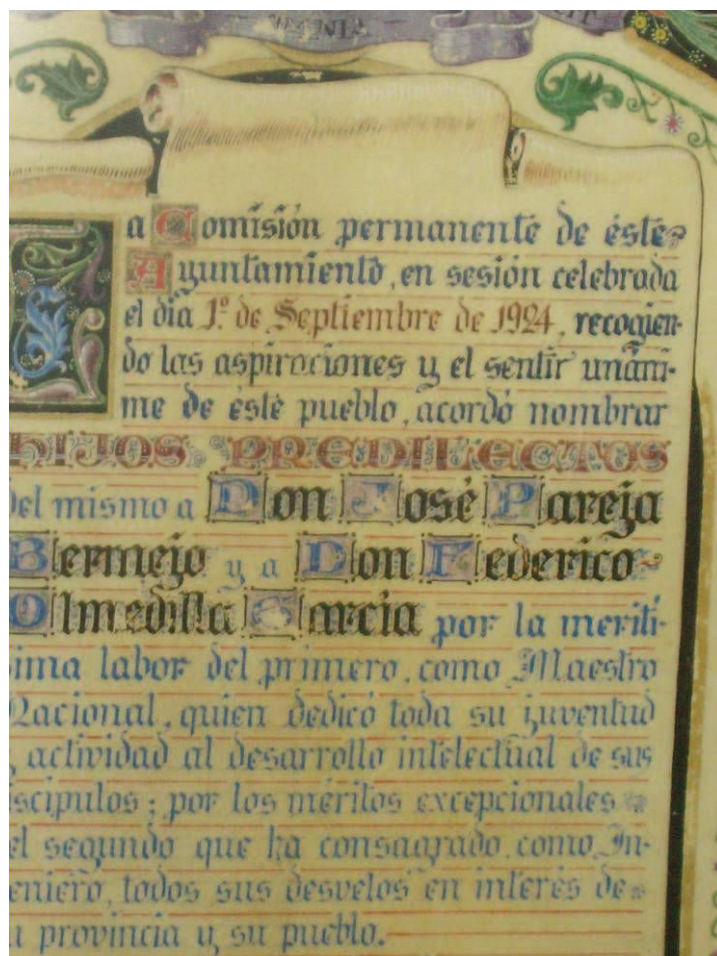 La Comisión permanente de éste
Ayuntamiento, en sesión celebrada
el día 1º de Septiembre de 1924, recogien-
do las aspiraciones y el sentir unáni-
me de éste pueblo, acordó nombrar
HIJOS PREDILECTOS
del mismo a Don José Pareja
Bermejo y a Don Federico
Olmedilla Garcia por la meriti-
sima labor del primero, como Maestro
Nacional, quien dedicó toda su juventud
y actividad al desarrollo intelectual de sus
iscipulos; por los méritos excepcionales
el segundo que ha consagrado, como In-
eniero, todos sus desvelos en interés de
u provincia y su pueblo.